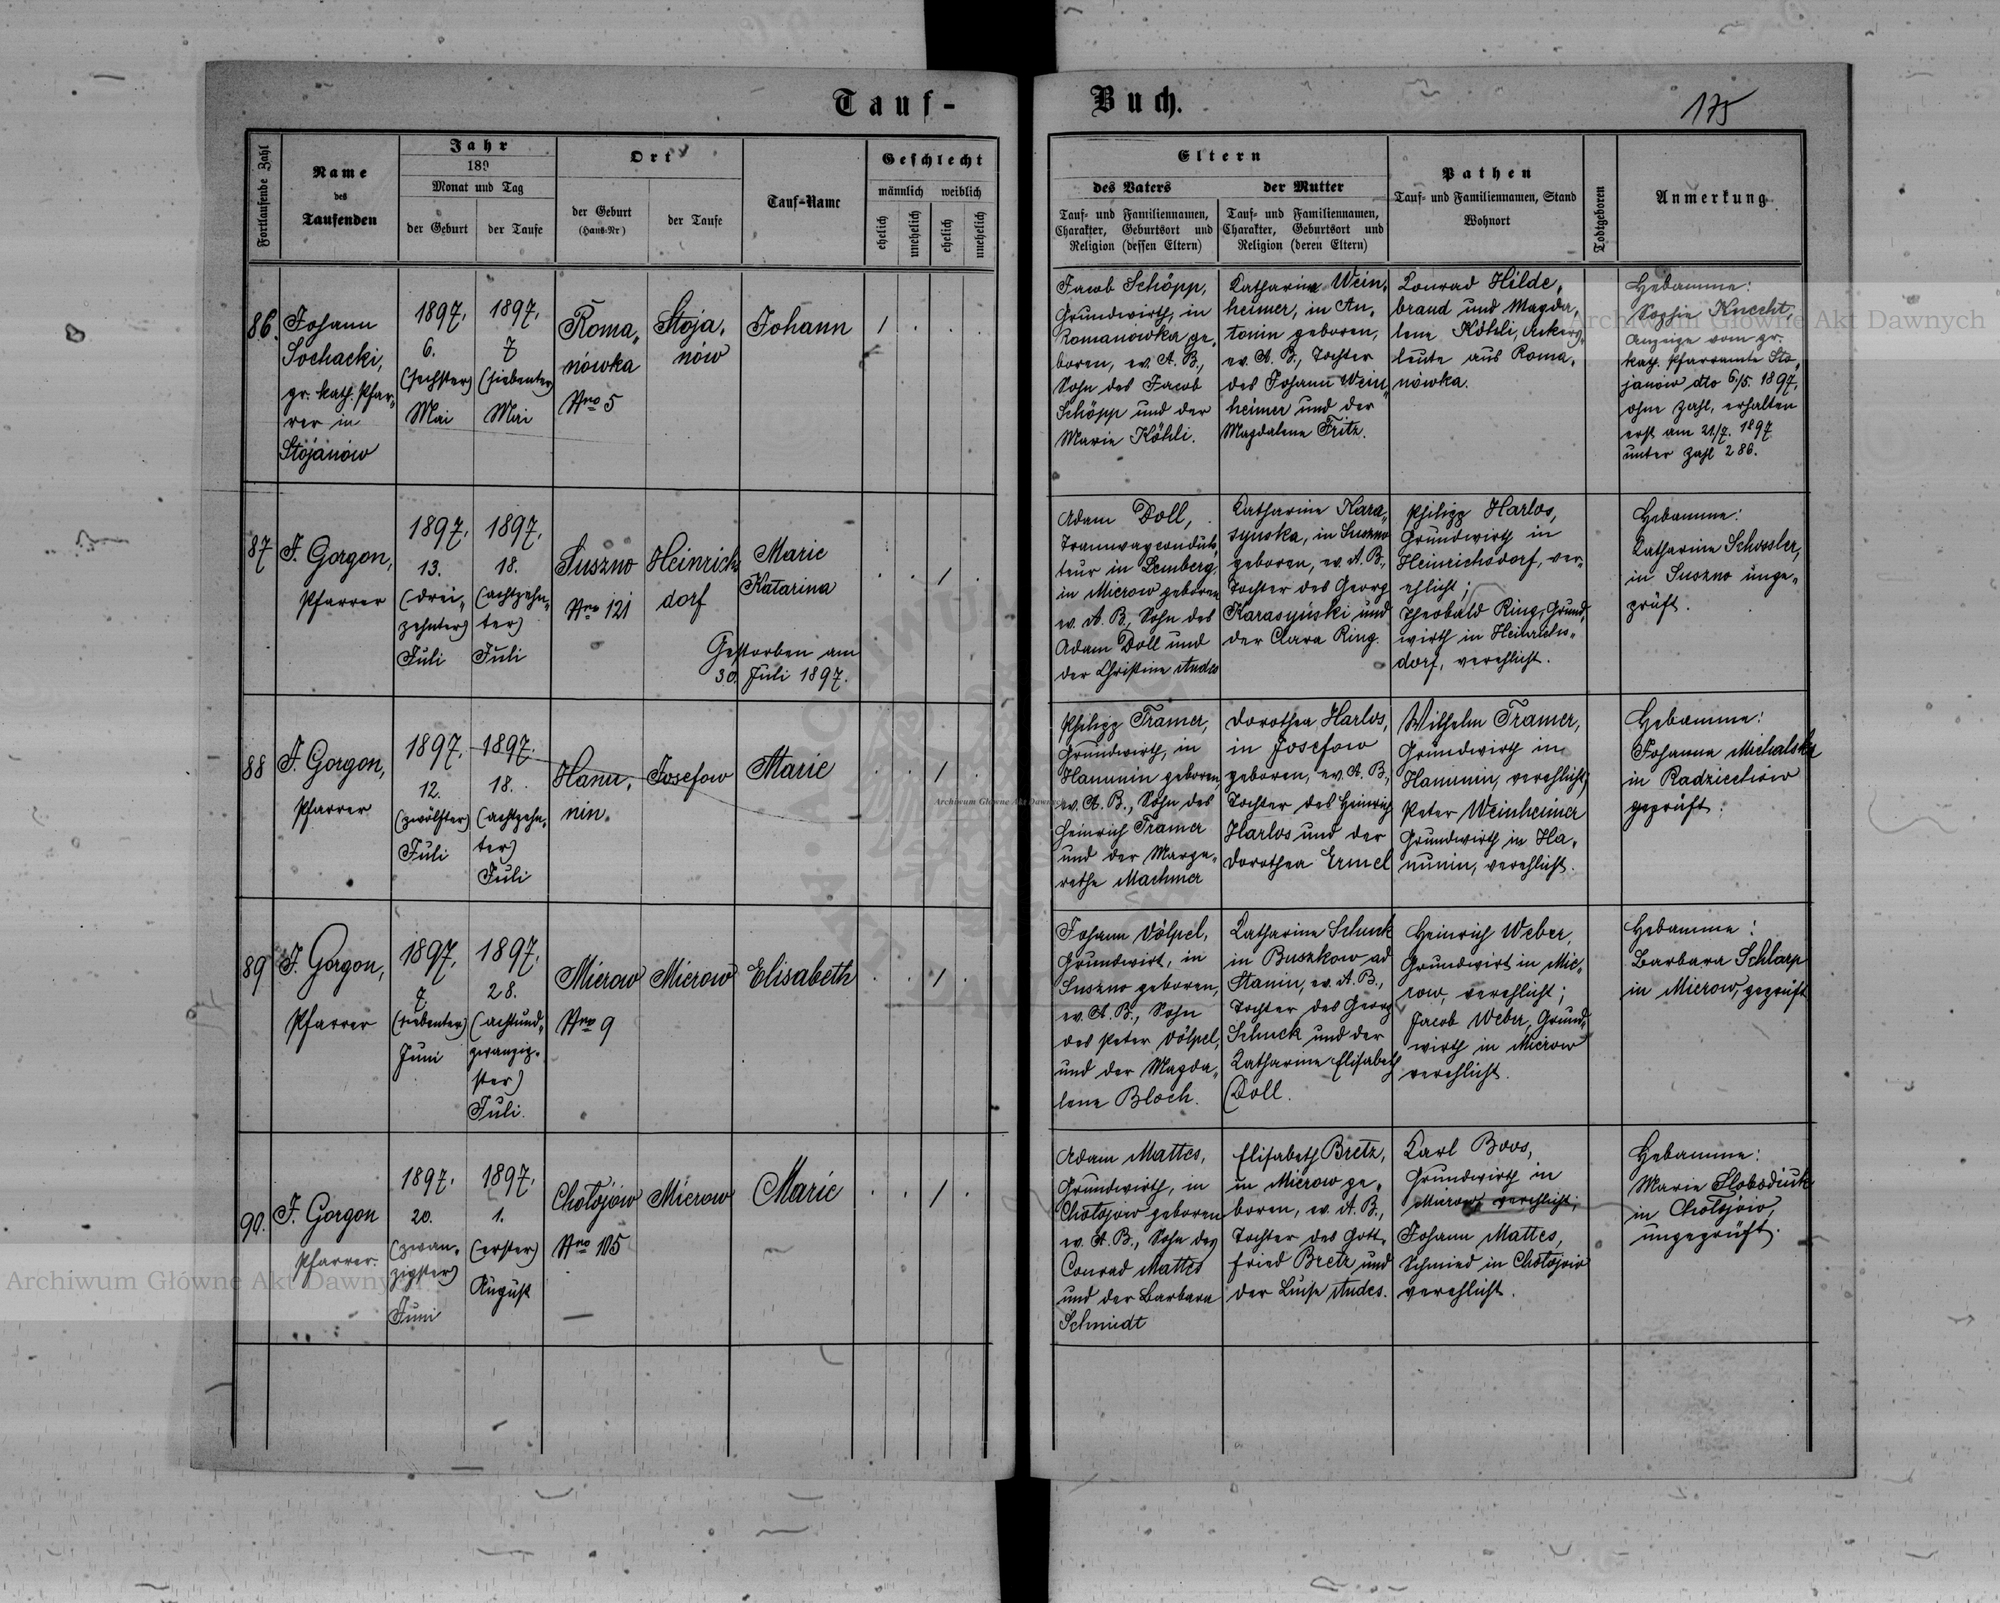 Tauf-
Buch.
175
Fortlaufende Zahl
Name
des
Taufenden
Jahr
189
Monat und Tag
der Geburt
der Taufe
Ort
der Geburt
(Haus-Nr)
der Taufe
Tauf-Name
Geschlecht
männlich
weiblich
ehelich
unehelich
ehelich
unehelich
Eltern
des Vaters
Tauf- und Familiennamen,
Charakter, Geburtsort und
Religion (dessen Eltern)
der Mutter
Tauf- und Familiennamen,
Charakter, Geburtsort und
Religion (deren Eltern)
Pathen
Tauf- und Familiennamen, Stand
Wohnort
Todtgeboren
Anmerkung
86.
Johann
Sochacki,
gr. kath. Pfar-
rer in
Stojanów
1897.
6.
(sechster)
Mai
1897.
7
(siebenter)
Mai
Roma-
nówka
Nro 5
Stoja-
nów
Johann
1
Jacob Schöpp,
Grundwirth, in
Romanówka ge-
boren, ev. A. B.,
Sohn des Jacob
Schöpp und der
Marie Köhli.
Katharine Wein-
heimer, in An-
tonin geboren,
ev. A. B., Tochter
des Johann Wein-
heimer und der
Magdalena Fritz.
Konrad Hilde-
brand und Magda-
lena Köhli, Ackers-
leute aus Roma-
nówka.
Hebamme:
Sophie Knecht,
Anzeige vom gr.
kath. Pfarramte Sto-
janów dto 6/5. 1897,
ohne Zahl, erhalten
erst am 21/7. 1897
unter Zahl 286.
87
F. Gorgon,
Pfarrer
1897.
13.
(drei-
zehnter)
Juli
1897.
18.
(achtzehn-
ter)
Juli
Suszno
Nro 121
Heinrichs
dorf
Marie
Katarina
Gestorben am
30. Juli 1897.
1
Adam Doll,
Tramwayconduk-
teur in Lemberg,
in Mierow geboren
ev. A. B., Sohn des
Adam Doll und
der Christine Andes
Katharine Kara-
synska, in Suszno
geboren, ev. A. B.,
Tochter des Georg
Karasyński und
der Clara Ring.
Philipp Harlos,
Grundwirth in
Heinrichsdorf, ver-
ehlicht;
Theobald Ring, Grund-
wirth in Heinrichs-
dorf, verehlicht.
Hebamme:
Katharine Schossler,
in Suszno unge-
prüft.
88
F. Gorgon,
Pfarrer
1897.
12.
(zwölfter)
Juli
1897.
18.
(achtzehn-
ter)
Juli
Hanu-
nin.
Josefow
Marie
1
Philipp Tramer,
Grundwirth, in
Hanunin geboren,
ev. A. B., Sohn des
Heinrich Tramer
und der Marga-
rethe Machmer
Dorothea Harlos,
in Josefow
geboren, ev. A. B.,
Tochter des Heinrich
Harlos und der
Dorothea Ermel
Wilhelm Tramer,
Grundwirth in
Hanunin, verehlicht;
Peter Weinheimer
Grundwirth in Ha-
nunin, verehlicht.
Hebamme:
Johanna Michalska
in Radziechów
geprüft.
89
F. Gorgon,
Pfarrer
1897.
7
(siebenter)
Juni
1897.
28.
(achtund-
zwanzig-
ster)
Juli.
Mierow
Nro 9
Mierow
Elisabeth
1
Johann Völpel,
Grundwirt, in
Suszno geboren,
ev. A. B., Sohn
des Peter Völpel,
und der Magda-
lena Bloch.
Katharine Schuck
in Buszkow ad
Stanin, ev. A. B.,
Tochter des Georg
Schuck und der
Katharine Elisabeth
Doll.
Heinrich Weber,
Grundwirt in Mie-
row, verehlicht;
Jacob Weber, Grund-
wirth in Mierow
verehlicht.
Hebamme:
Barbara Schlarp
in Mierow, geprüft
90.
F. Gorgon
Pfarrer.
1897.
20.
(zwan-
zigster)
Juni
1897.
1.
(erster)
August
Chołojów
Nro 105
Mierow
Marie
1
Adam Mattes,
Grundwirth, in
Chołojow geboren
ev. A. B., Sohn des
Conrad Mattes
und der Barbara
Schmidt
Elisabeth Bretz,
in Mierow ge-
boren, ev. A. B.,
Tochter des Gott-
fried Bretz und
der Luise Andes.
Karl Boos,
Grundwirth in
Mierow, verehlicht;
Johann Mattes,
Schmied in Chołojow
verehlicht.
Hebamme:
Marie Slobodiuk
in Chołojów,
ungeprüft.
Archiwum Główne Akt Dawnych
Archiwum Główne Akt Dawnych
Archiwum Główne Akt Dawnych